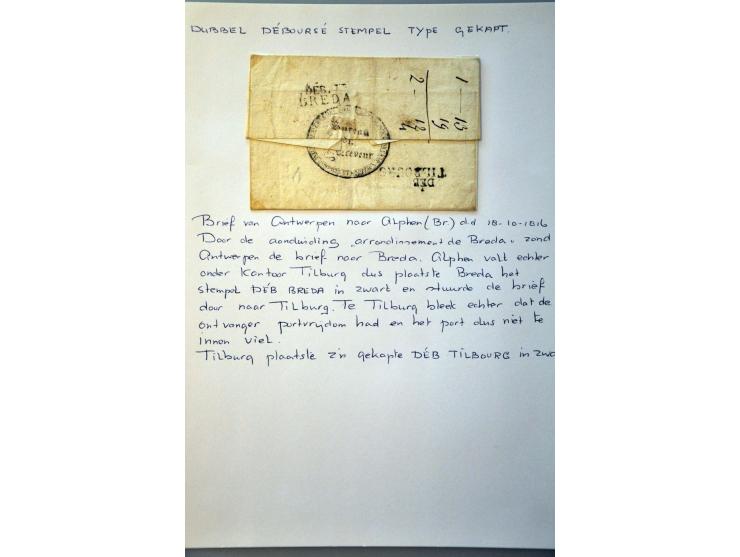 DUBBEL DÉBOURSÉ STEMPEL TYPE GEKAPT.
DÉB.
BREDA
Bureau
Receveur
1 — 13
19
2 -
DÉB
TILBOURG
Brief van Antwerpen naar Alphen (Br.) dd 18-10-1816
Door de aanduiding „arrondinnement de Breda" zond
Antwerpen de brief naar Breda. Alphen valt echter
onder Kantoor Tilburg dus plaatste Breda het
stempel DÉB BREDA in zwart en stuurde de brief
door naar Tilburg. Te Tilburg bleek echter dat de
ontvanger portvrijdom had en het port dus niet te
innen viel.
Tilburg plaatste z'n gekapte DÉB TILBOURG in zwa